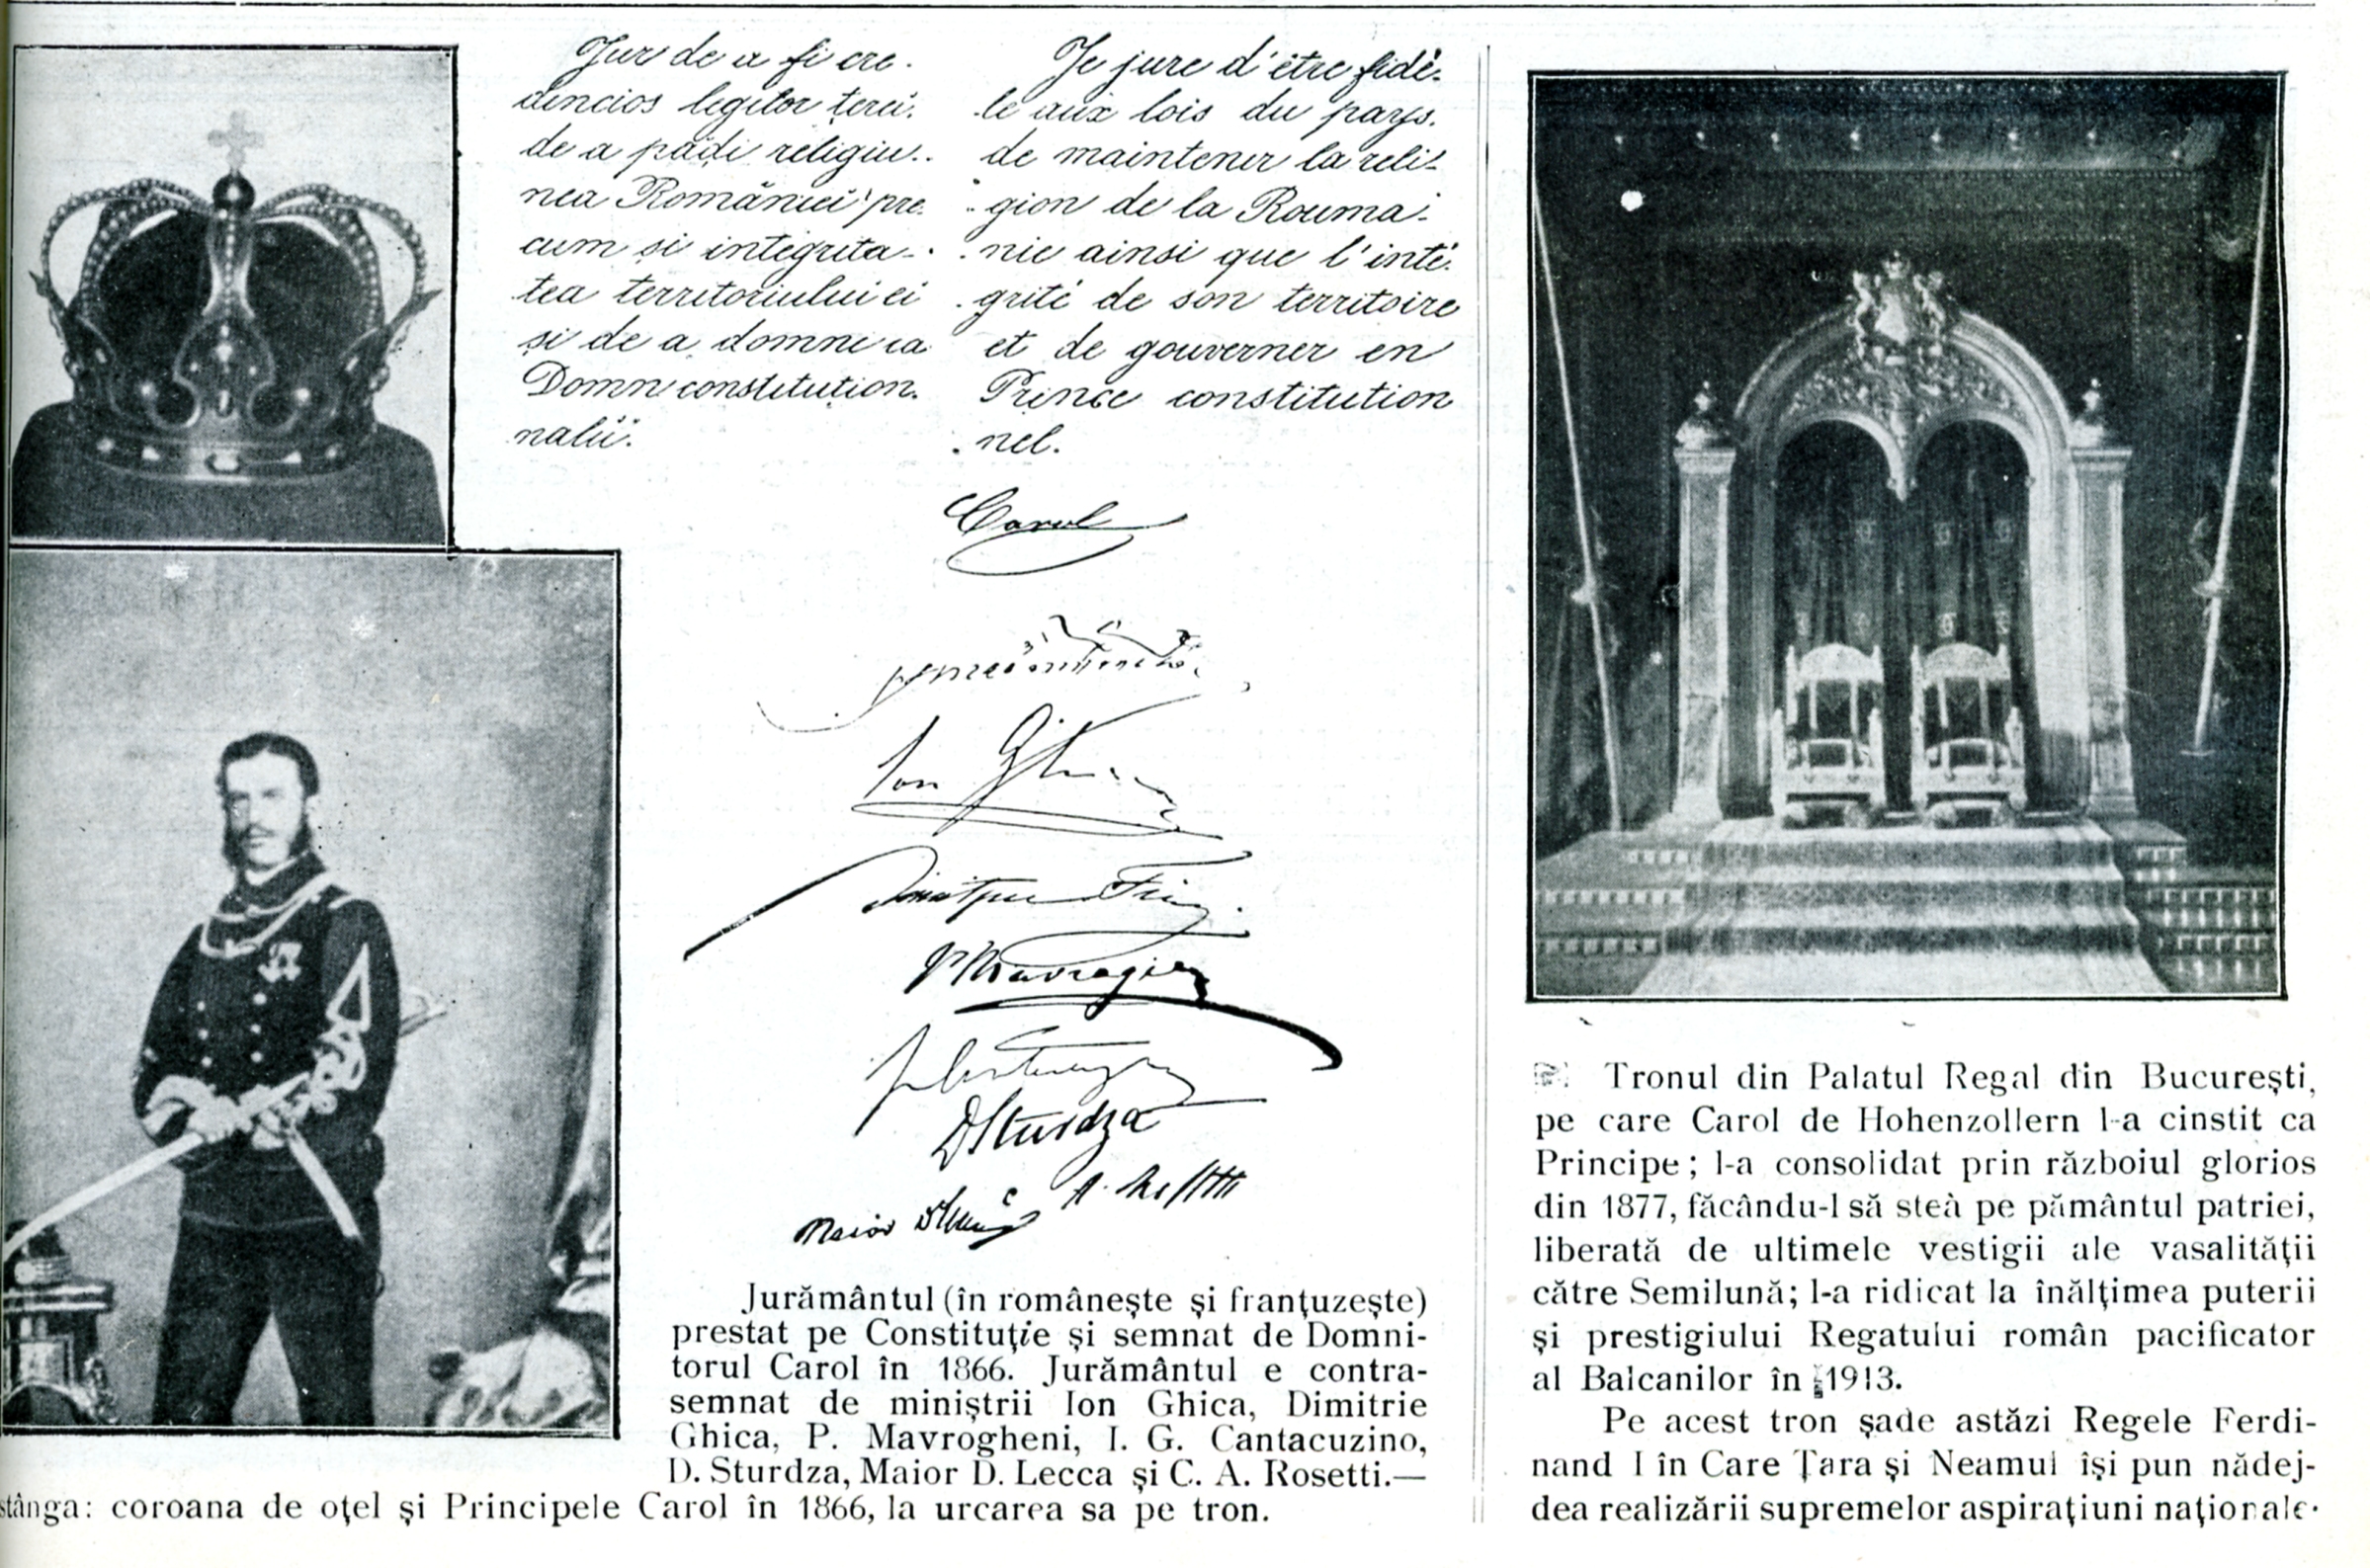 Jur de a fi cre.
dincios legilor țerei.
de a păḑi religiu..
nea României pre.
cum și integrita-.
tea territoriului ei
și de a domni ca
Domn constitution.
nalŭ.
Je jure d'être fidè-
le aux lois du pays.
de maintenir la reli-
gion de la Rouma-
nie ainsi que l'inté-
grité de son territoire
et de gouverner en
Prince constitution
nel.
Carol
Ion Ghica
Dimitrie Ghica
P Mavrogheni
D Sturdza
Maior
Jurământul (în românește și franțuzește)
prestat pe Constituție și semnat de Domni-
torul Carol în 1866. Jurământul e contra-
semnat de miniștrii Ion Ghica, Dimitrie
Ghica, P. Mavrogheni, I. G. Cantacuzino,
D. Sturdza, Maior D. Lecca și C. A. Rosetti.—
stânga: coroana de oțel și Principele Carol în 1866, la urcarea sa pe tron.
Tronul din Palatul Regal din București,
pe care Carol de Hohenzollern l-a cinstit ca
Principe; l-a consolidat prin războiul glorios
din 1877, făcându-l să steà pe pământul patriei,
liberată de ultimele vestigii ale vasalității
către Semilună; l-a ridicat la înălțimea puterii
și prestigiului Regatului român pacificator
al Balcanilor în 1913.
Pe acest tron șade astăzi Regele Ferdi-
nand I în Care Țara și Neamul își pun nădej-
dea realizării supremelor aspirațiuni naționale.